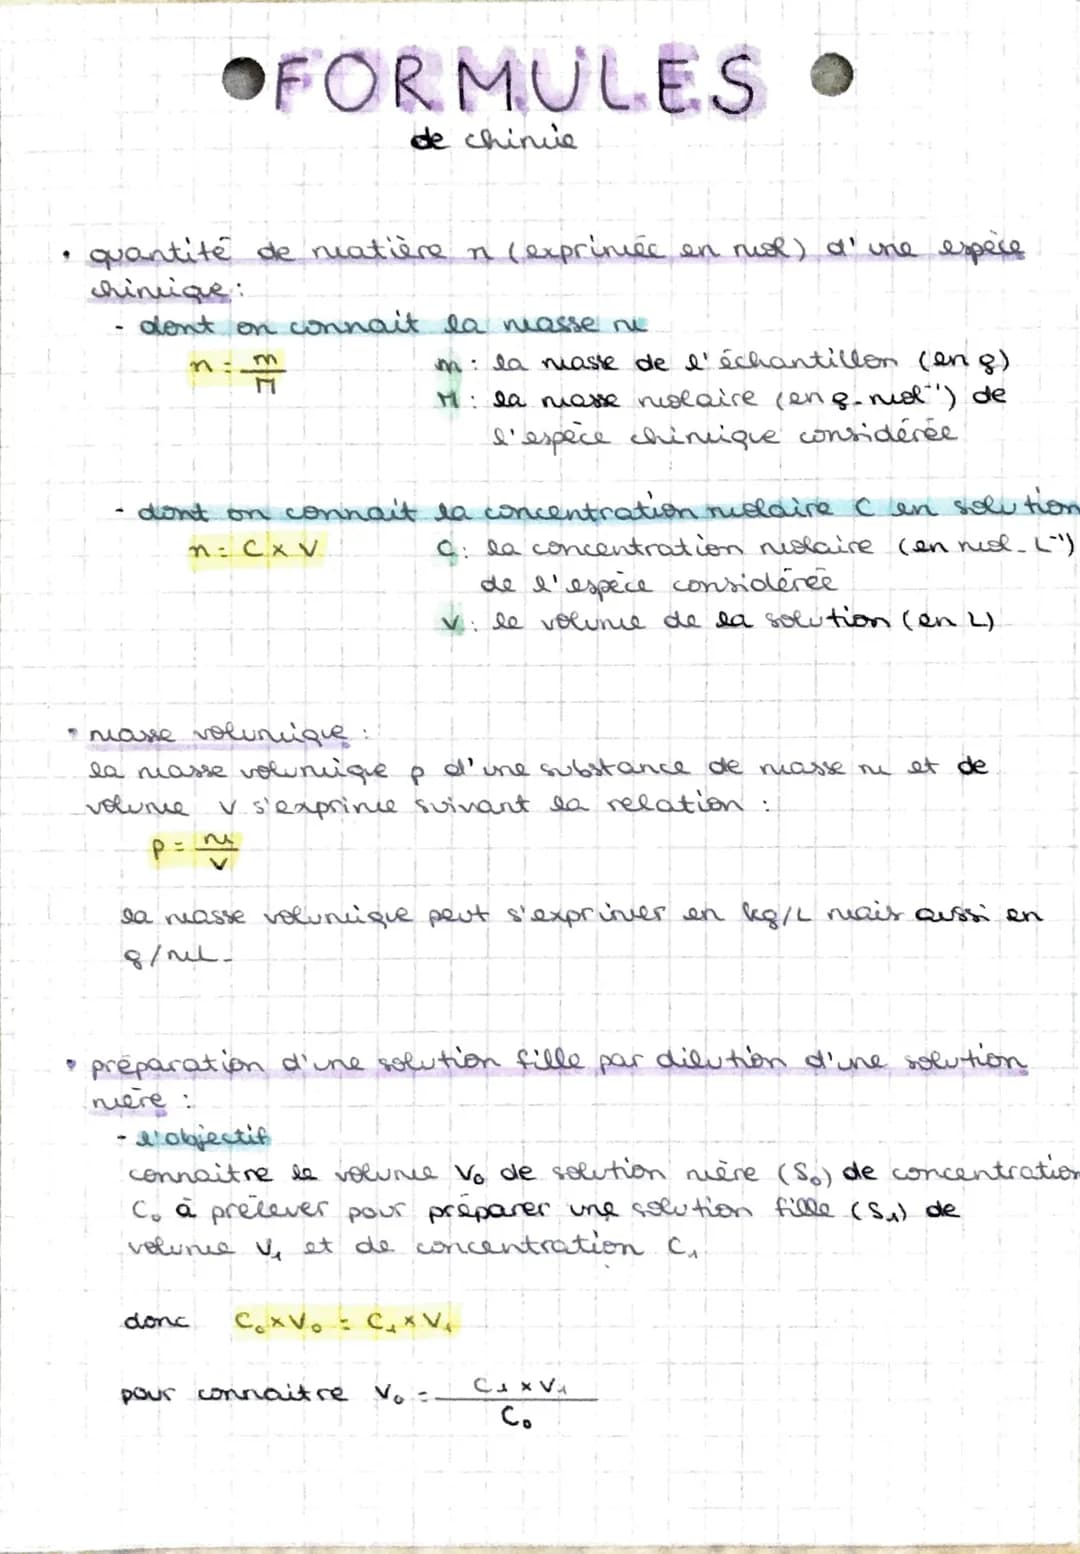 FORMULES
de chimie
• quantité de matière n (exprimée en mol) d'une espèce
chimique :
- dont on connait la masse m
n = m/M
m : la masse de l'échantillon (en g)
M : la masse molaire (en g.mol⁻¹) de
l'espèce chimique considérée
- dont on connait la concentration molaire C en solution
n = C x V
C : la concentration molaire (en mol.L⁻¹)
de l'espèce considérée
V : le volume de la solution (en L)
• masse volumique :
la masse volumique ρ d'une substance de masse m et de
volume V s'exprime suivant la relation :
ρ = m/V
la masse volumique peut s'exprimer en kg/L mais aussi en
g/mL.
• préparation d'une solution fille par dilution d'une solution
mère :
- l'objectif
connaitre le volume V₀ de solution mère (S₀) de concentration
C₀ à prélever pour préparer une solution fille (S₁) de
volume V₁ et de concentration C₁
donc C₀ x V₀ = C₁ x V₁
pour connaitre V₀ = C₁ x V₁ / C₀